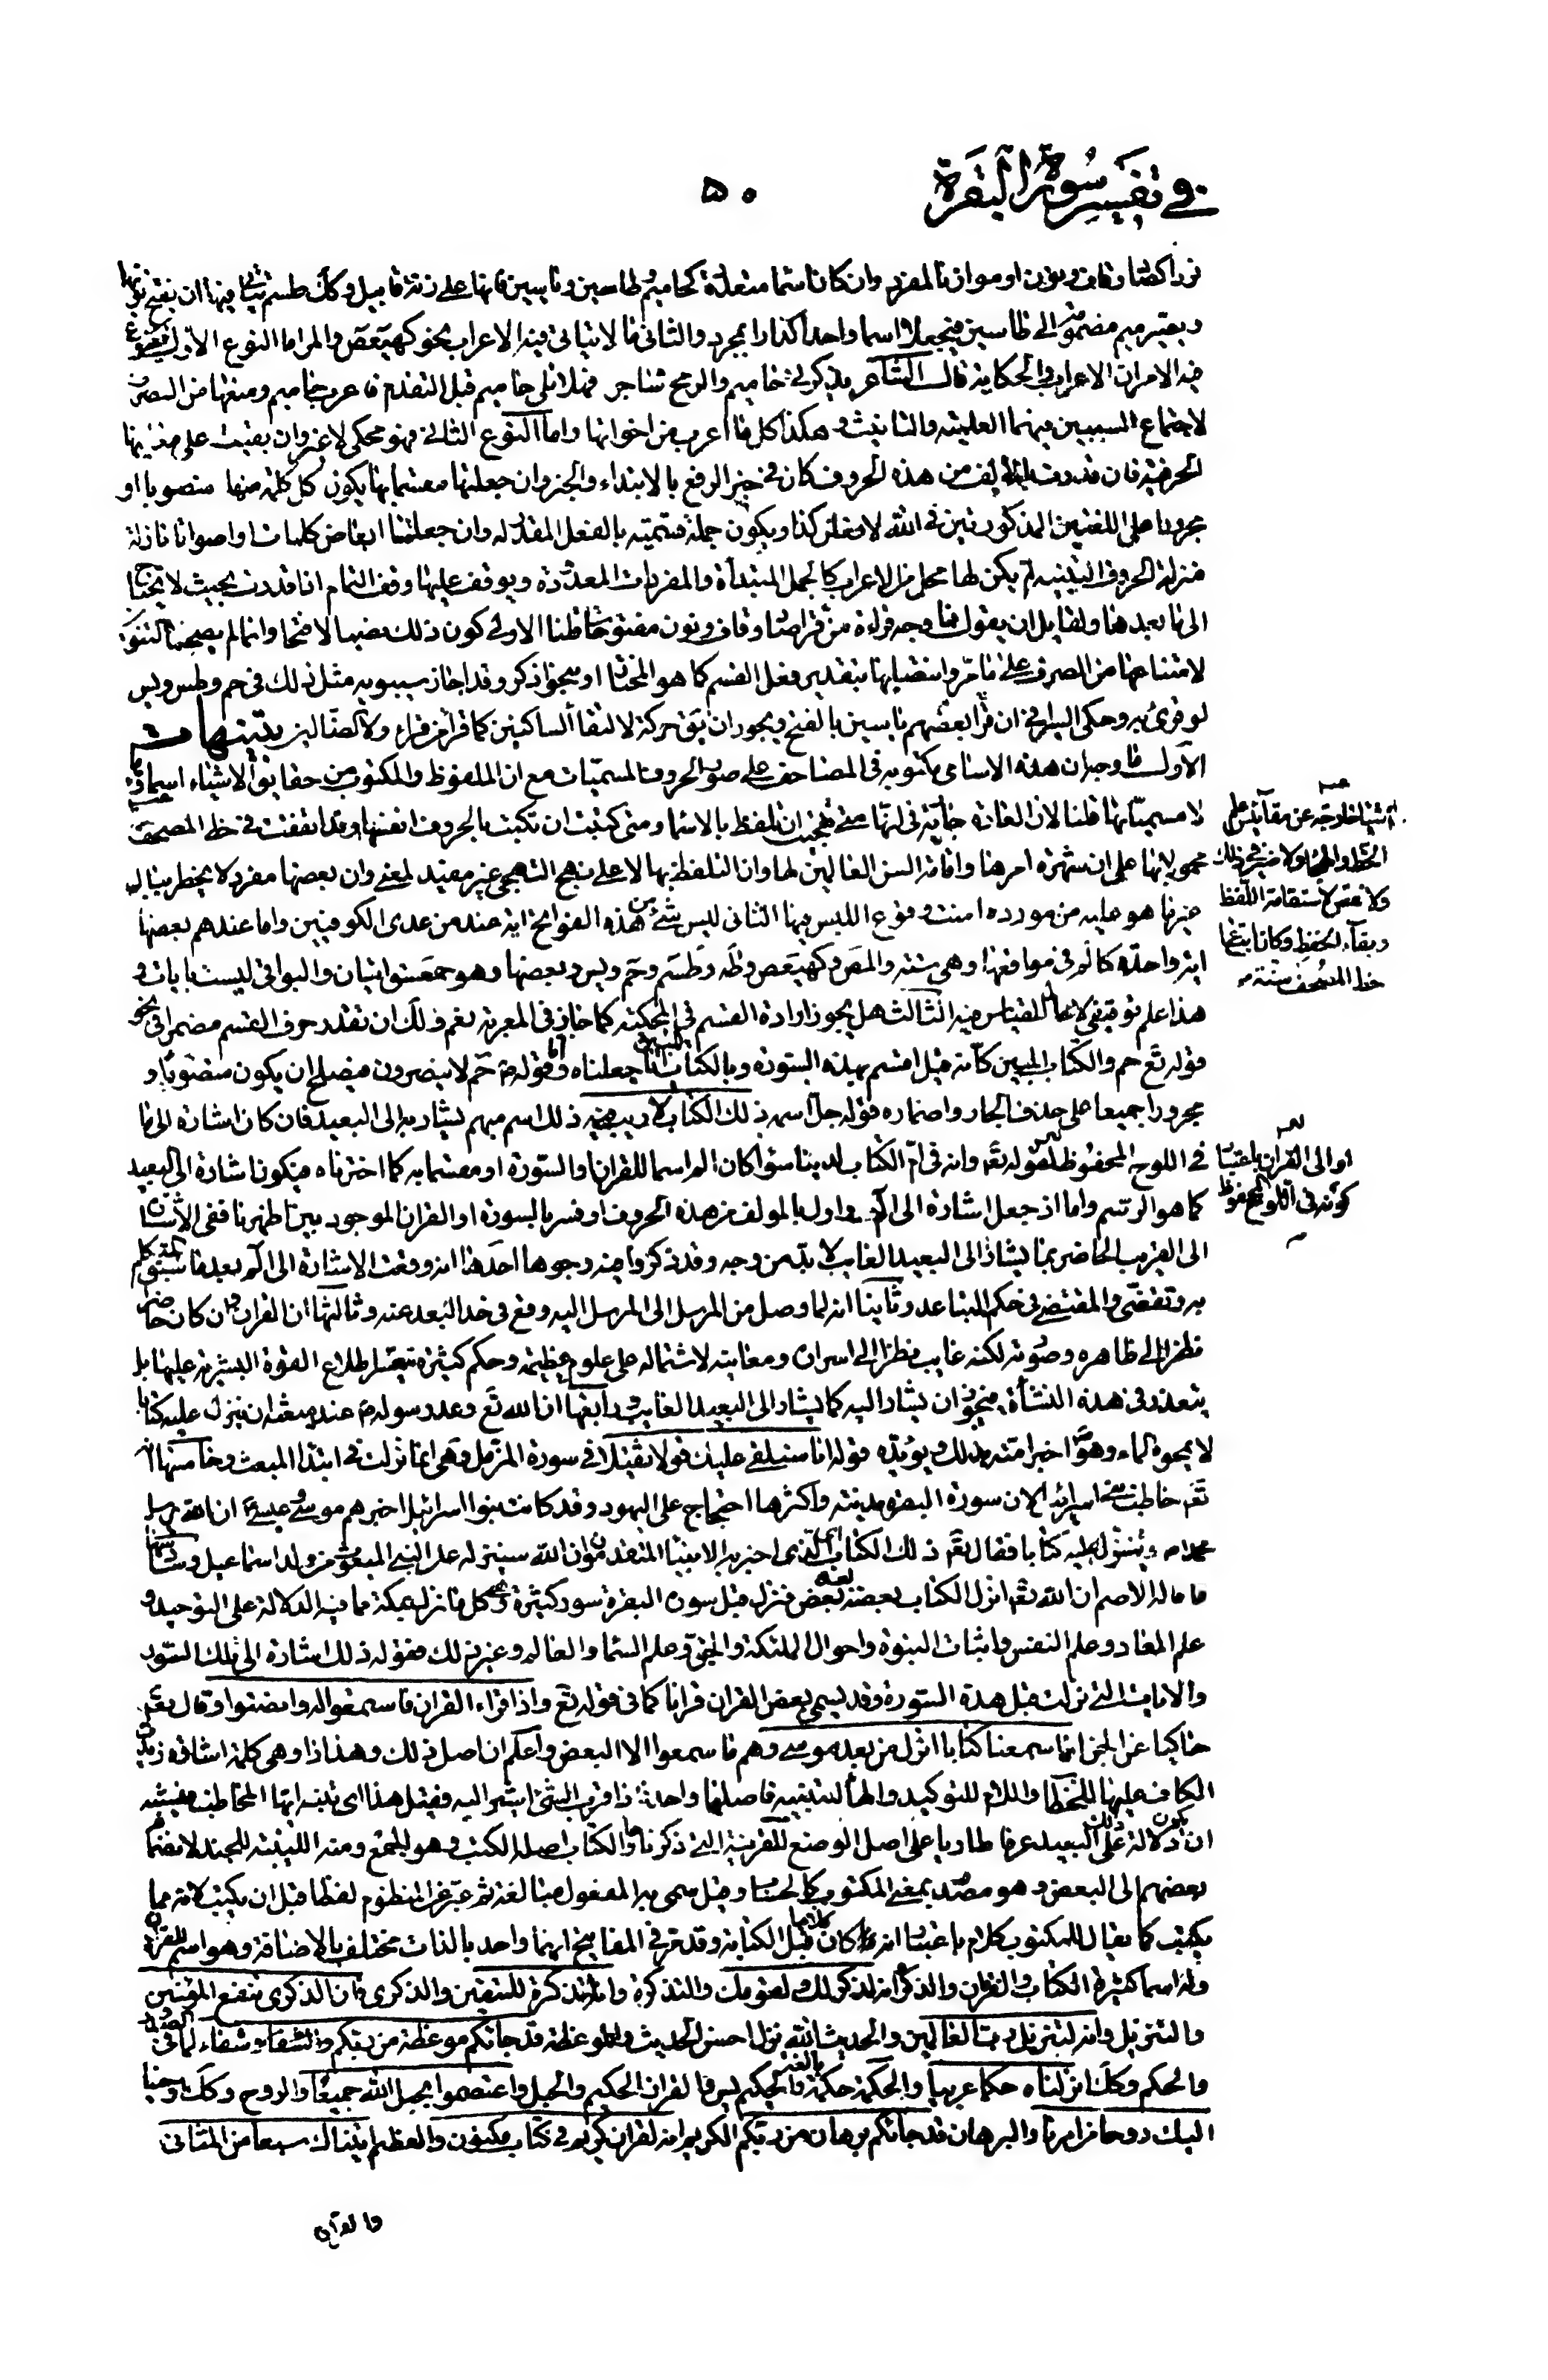 في تفسير سورة البقرة
٥٠
فردا كصاد وقاف ونون او موازنا لمفرد وان كان اسما متعددة كحاميم وطاسين وياسين فانها على زنة قابيل وكك طسم يتاتى فيها ان يفتح نونها
ويصير ميم مضمومة الى طاسين فيجعلا اسما واحدا كدارا بجرد والثاني ما لا يتاتى فيه الاعراب نحو كهيعص والمر اما النوع الاول فيسوغ
فيه الامران الاعراب والحكاية قال الشاعر يذكرني حاميم والرمح شاجر فهلا تلى حاميم قبل التقدم فاعرب حاميم ومنعها من الصرف
لاجتماع السببين فيهما العلمية والتانيث وهكذا كل ما اعرب من اخواتها واما النوع الثاني فهو محكى لا غير وان بقيت على معانيها
الحرفية فان قدرت بالمؤلف من هذه الحروف كان في حيز الرفع بالابتداء والخبر وان جعلتها مقسما بها يكون كل كلمة منها منصوبا او
مجرورا على اللغتين المذكورتين في الله لافعلن كذا ويكون جملة قسمية بالفعل المقدر له وان جعلتها ابعاض كلمات او اصواتا نازلة
منزلة الحروف التنبيه لم يكن لها محل من الاعراب كالجمل المبتدأة والمفردات المعدودة ويوقف عليها وقف التمام اذا قدرت بحيث لا تحتاج
الى ما بعدها ولقايل ان يقول فما وجه قراءة من قرا صاد وقاف ونون مفتوحات قلنا الاولى كون ذلك نصبا لا فتحا وانما لم يصحبها التنوين
لامتناعها من الصرف على ما مر وانتصابها بتقدير فعل القسم كما هو المختار او بنحو اذكر وقد اجاز سيبويه مثل ذلك في حم وطس ويس
لو قرئ به وحكى السيرافي ان قرأ بعضهم ياسين بالفتح ويجوز ان يق حركة لالتقاء الساكنين كما قرأ من قراء ولا الضالين تنبيهات
الاول ما وجه ان هذه الاسامي مكتوبة في المصاحف على صور الحروف المسميات مع ان الملفوظ والمكتوب من حقايق الاشياء اسماؤها
لا مسمياتها قلنا لان العادة جارية في انها متى تهجيت ان تلفظ بالاسما ومتى كتبت ان تكتب بالحروف انفسها وقد اتفقت في خط المصحف
محمولا بها على ان شهرة امرها واقامة السن القالين لها وان التلفظ بها لا على نهج التهجى غير مفيد لمعنى وان بعضها مفرد لا يخطر ببال
غيرها هو عليه من مورده امنت وقوع اللبس فيها الثاني ليس شئ من هذه الفواتح اية عند من عدى الكوفيين واما عندهم بعضها
اية واحدة كالم في مواقعها وهي ستة والمص وكهيعص وطه وطسم وحم ويس وبعضها وهو حمعسق ايتان والبواقي ليست بايات و
هذا علم توقيفى لا مجال للقياس فيه الثالث هل يجوز ارادة القسم في المحكية كما جاز في المعربة نعم ولك ان تقدر حرف القسم مضمرا في نحو
قوله تع حم والكتاب المبين كانه قيل اقسم بهذه السورة وبالكتاب المبين انا جعلناه واما قوله ص حم لا ينصرون فيصلح ان يكون منصوبا و
مجرورا جميعا على حذف الجار واضماره قوله جل اسمه ذلك الكتاب لا ريب فيه ذلك اسم مبهم يشار به الى البعيد فان كان اشارة الى ما
في اللوح المحفوظ لقوله تعم وانه في ام الكتاب لدينا سواء كان الم اسما للقران والسورة او مقسما به كما اخترناه فيكون اشارة الى البعيد
كما هو الرسم واما اذ جعل اشارة الى الم واول بالمولف من هذه الحروف او فسر بالسورة او القران الموجود بين اظهرنا ففي الاشارة
الى القريب الحاضر بما يشار الى البعيد الغايب لا بد من وجه وقد ذكروا فيه وجوها احدها انه وقعت الاشارة الى الم بعد ما سبق التكلم
به وتقضى والمقتضى في حكم المتباعد وثانيها انه لما وصل من المرسل الى المرسل اليه وقع في حد البعد عنه وثالثها ان القران وان كان حاضرا
نظرا الى ظاهره وصورته لكنه غايب نظرا الى اسراره ومعانيه لاشتماله على علوم عظيمة وحكم كثيرة يتعسر اطلاع القوة البشرية عليها بل
يتعذر في هذه النشأة فيجوز ان يشار اليه كما يشار الى البعيد الغايب ورابعها ان الله تع وعد رسوله ص عند مبعثه ان ينزل عليه كتابا
لا يمحوه الماء وهو ص اخبر امته بذلك ويؤيده قوله انا سنلقي عليك قولا ثقيلا في سورة المزمل وهي انما نزلت في ابتدا المبعث وخامسها انه
تعم خاطب بني اسرائيل لان سورة البقرة مدينة واكثرها احتجاج على اليهود وقد كانت بنوا اسرائيل اخبرهم موسى وعيسى ع ان الله يرسل
محمدا ص وينزل عليه كتابا فقال تعم ذلك الكتاب اي الذي اخبر به الانبيا المتقدمون ان الله سينزله على النبي المبعوث من ولد اسماعيل وسادسها
ما قاله الاصم ان الله تعم انزل الكتاب بعضه بعد بعض فنزل قبل سورة البقرة سور كثيرة وهي كل ما نزل بمكة مما فيه الدلالة على التوحيد و
علم المعاد وعلم النفس واثبات النبوة واحوال الملئكة والجن وعلم السما والعالم وغير ذلك فقوله ذلك اشارة الى تلك السور
والايات التي نزلت قبل هذه السورة وقد يسمى بعض القران قرانا كما في قوله تع واذا قراء القران فاستمعوا له وانصتوا وقال تعم
حاكيا عن الجن انا سمعنا كتابا انزل من بعد موسى وهم ما سمعوا الا البعض واعلم ان اصل ذلك وهذا ذا وهي كلمة اشارة زيدت
الكاف عليها للخطاب واللام للتوكيد والهاء للتنبيه فاصلهما واحد ذا قرب الشئ اشير اليه فقيل هذا اي تنبه ايها المخاطب فيشبه
ان يكون دلالة ذلك على البعيد عرفا طاريا على اصل الوضع للقرينة التي ذكرناها والكتاب اصله الكتب وهو الجمع ومنه الكتيبة للجند لانضمام
بعضهم الى البعض وهو مصدر بمعنى المكتوب كالحساب وقيل سمى به المفعول مبالغة ثم عبر عن المنظوم لفظا قبل ان يكتب لانه مما
يكتب كما يقال للمكتوب كلام باعتبار انه كان كلاما قبل الكتابة وقد مر في المفاتيح انهما واحد بالذات مختلف بالاضافة وهو اسم للقران
وله اسما كثيرة الكتاب والقران والذكر انه لذكر لك ولقومك والتذكرة وانه لتذكرة للمتقين والذكرى فان الذكرى تنفع المؤمنين
والتنزيل وانه لتنزيل رب العالمين والحديث الله نزل احسن الحديث والموعظة قد جائكم موعظة من ربكم والشفاء وشفاء لما في الصدور
والحكم وكك انزلناه حكما عربيا والحكمة حكمة بالغة والحكيم يس والقران الحكيم والحبل واعتصموا بحبل الله جميعا والروح وكك اوحينا
اليك روحا من امرنا والبرهان قد جائكم برهان من ربكم الكريم انه لقران كريم في كتاب مكنون والعظيم اتيناك سبعا من المثاني
والقران
اشيا خارجة عن مقاييس علمي
الخط والهجا ولا ضير في ذلك
ولا نقص لاستقامة اللفظ
وبقاء الحفظ وكان اتباع
خط المصحف سنة
او الى القران باعتبار
كونه في اللوح المحفوظ